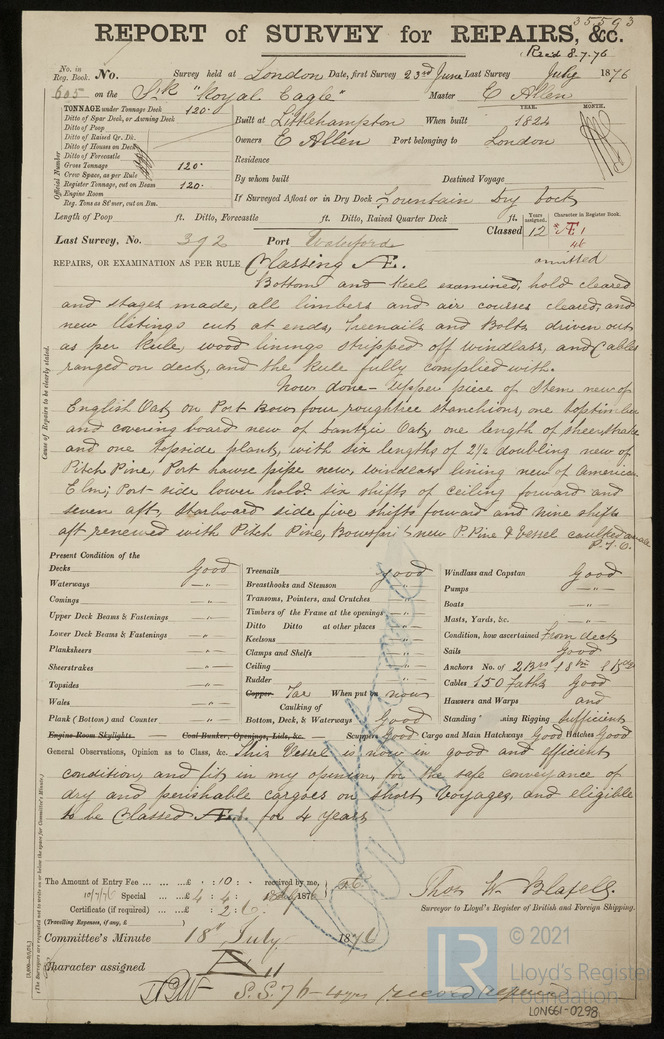 35593
REPORT of SURVEY for REPAIRS, &c.
Recd 8.7.76
No. in Reg. Book. No. Survey held at London Date, first Survey 23rd June Last Survey July 1876
605 on the Sk "Royal Eagle" Master E Allen
TONNAGE under Tonnage Deck 120.
Ditto of Spar Deck, or Awning Deck
Ditto of Poop
Ditto of Raised Qr. Dk.
Ditto of Houses on Deck
Ditto of Forecastle
Gross Tonnage 120.
Crew Space, as per Rule
Register Tonnage, cut on Beam 120.
Engine Room
Reg. Tons as St'mer, cut on Bm.
Official Number
YEAR. MONTH.
Built at Littlehampton When built 1824
Owners E Allen Port belonging to London
Residence
By whom built Destined Voyage
If Surveyed Afloat or in Dry Dock Fountain Dry Dock
Length of Poop ft. Ditto, Forecastle ft. Ditto, Raised Quarter Deck ft.
Last Survey, No. 392 Port Waterford
Classed Years assigned. 12 Character in Register Book. Æ 1
omitted
REPAIRS, OR EXAMINATION AS PER RULE Classing Æ.
Cause of Repairs to be clearly stated.
Bottom and Keel examined, hold cleared
and stages made, all limbers and air courses cleared, and
new listings cut at ends, Treenails and Bolts driven out
as per Rule, wood linings stripped off windlass, and Cables
ranged on deck, and the Rule fully complied with.
Now done - Upper piece of Stem new of
English Oak, on Port Bow, four roughtree stanchions, one toptimber
and covering board new of Dantzic Oak, one length of sheerstrake
and one topside plank, with six lengths of 2½ doubling new of
Pitch Pine, Port hawse pipe new, windlass lining new of American
Elm; Port side lower hold six shifts of ceiling forward and
seven aft, Starboard side five shifts forward and nine shifts
aft renewed with Pitch Pine, Bowsprit new P. Pine & Vessel caulked
P.T.O.
Present Condition of the
Decks Good
Waterways — " —
Comings — " —
Upper Deck Beams & Fastenings — " —
Lower Deck Beams & Fastenings — " —
Planksheers — " —
Sheerstrakes — " —
Topsides — " —
Wales — " —
Plank (Bottom) and Counter — " —
Engine Room Skylights. — Coal Bunker, Openings, Lids, &c. —
Treenails Good
Breasthooks and Stemson — " —
Transoms, Pointers, and Crutches — " —
Timbers of the Frame at the openings — " —
Ditto Ditto at other places — " —
Keelsons — " —
Clamps and Shelfs — " —
Ceiling — " —
Rudder — " —
Copper Tar When put on now
Caulking of
Bottom, Deck, & Waterways Good
Windlass and Capstan Good
Pumps — " —
Boats — " —
Masts, Yards, &c. — " —
Condition, how ascertained From deck
Sails Good
Anchors No. of 2 Brs 1 Sm
Cables 150 faths Good
Hawsers and Warps and
Standing & Running Rigging Sufficient
Scuppers Good Cargo and Main Hatchways Good Hatches Good
General Observations, Opinion as to Class, &c. This Vessel is now in good and efficient
condition, and fit in my opinion, for the safe conveyance of
dry and perishable cargoes on short Voyages, and eligible
to be Classed Æ1. for 4 years
The Amount of Entry Fee ... £ : 10 : received by me,
10/7/76 Special ... £ 4 : 4 : 1876
Certificate (if required) ... £ : 2 : 6
(Travelling Expenses, if any, £ )
Thos W. Blafell.
Surveyor to Lloyd's Register of British and Foreign Shipping.
Committee's Minute 18th July 1876
Character assigned
S.S. 76 - 4 yrs record repairs
(The Surveyors are requested not to write on or below the space for Committee's Minute.)
© 2021
LR
Lloyd's Register
Foundation
LON661-0298